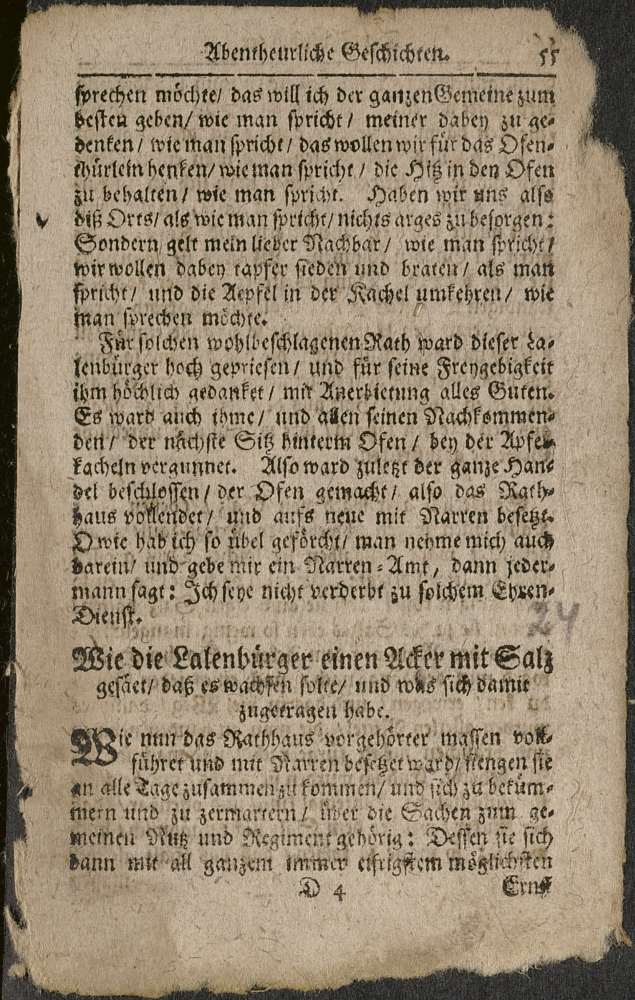 Abentheurliche Geschichten. 55
sprechen möchte/ das will ich der ganzen Gemeine zum
besten geben/ wie man spricht/ meiner dabey zu ge-
denken/ wie man spricht/ das wollen wir für das Ofen-
thürlein henken/ wie man spricht/ die Hitz in den Ofen
zu behalten/ wie man spricht. Haben wir uns also
diß Orts/ als wie man spricht/ nichts arges zu besorgen:
Sondern gelt mein lieber Nachbar/ wie man spricht/
wir wollen dabey tapfer sieden und braten/ als man
spricht/ und die Aepfel in der Kachel umkehren/ wie
man sprechen möchte.
Für solchen wohlbeschlagenen Rath ward dieser La-
lenbürger hoch gepriesen/ und für seine Freygebigkeit
ihm höchlich gedanket/ mit Anerbietung alles Guten.
Es ward auch ihme/ und allen seinen Nachkommen-
den/ der nächste Sitz hinterm Ofen/ bey der Apfel-
kacheln vergunnet. Also ward zuletzt der ganze Han-
del beschlossen/ der Ofen gemacht/ also das Rath-
haus vollendet/ und aufs neue mit Narren besetzt.
O wie hab ich so übel geförcht/ man nehme mich auch
darein/ und gebe mir ein Narren-Amt, dann jeder-
mann sagt: Ich seye nicht verderbt zu solchem Ehren-
Dienst.
24
Wie die Lalenbürger einen Acker mit Salz
gesäet/ daß es wachsen solte/ und was sich damit
zugetragen habe.
Wie nun das Rathhaus vorgehörter massen voll-
führet und mit Narren besetzet ward/ fiengen sie
an alle Tage zusammen zu kommen/ und sich zu beküm-
mern und zu zermartern/ über die Sachen zum ge-
meinen Nutz und Regiment gehörig: Dessen sie sich
dann mit all ganzem immer eifrigstem möglichsten
D 4 Ernst